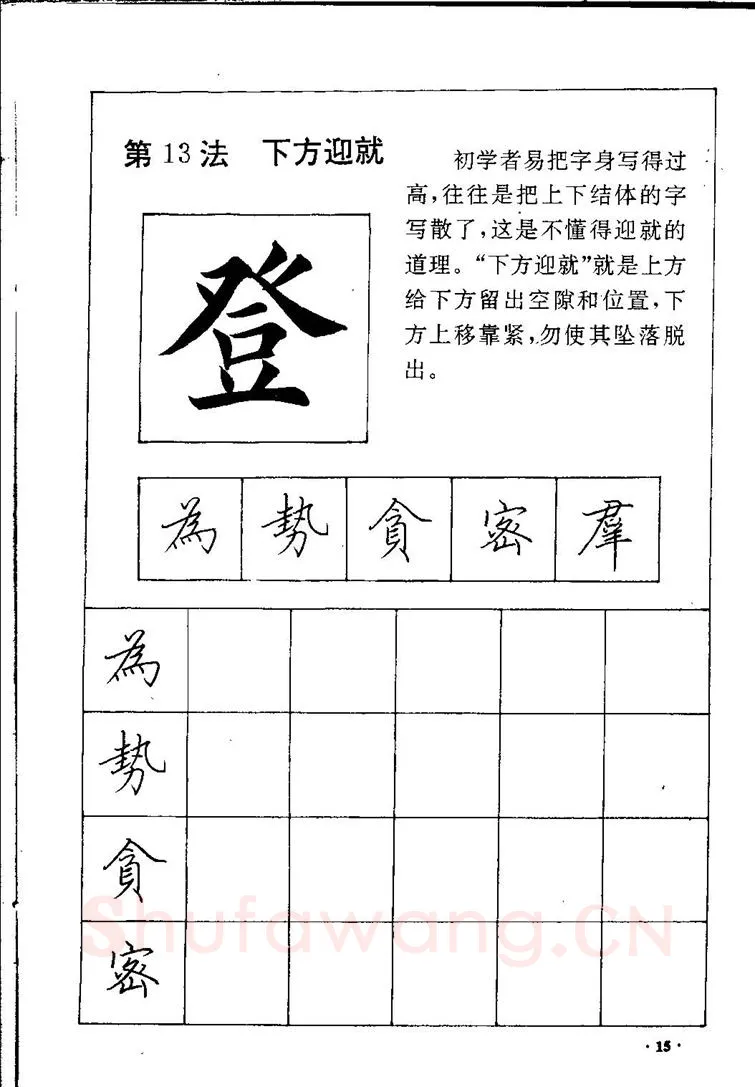 第13法 下方迎就
初学者易把字身写得过
高,往往是把上下结体的字
写散了,这是不懂得迎就的
道理。“下方迎就”就是上方
给下方留出空隙和位置,下
方上移靠紧,勿使其坠落脱
出。
登
為 勢 貪 密 羣
為
勢
貪
密
Shufawang.CN
·15·